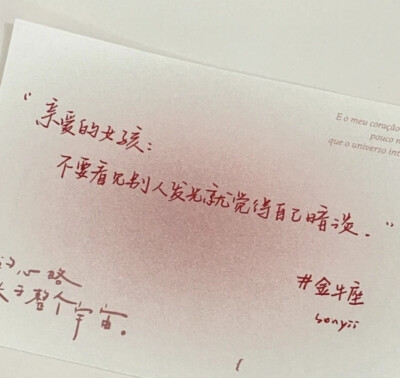 E o meu coração
pouco
que o universo int
“亲爱的女孩：
不要看见别人发光就觉得自己暗淡．”
的心略
大于整个宇宙。
#金牛座
sonyii